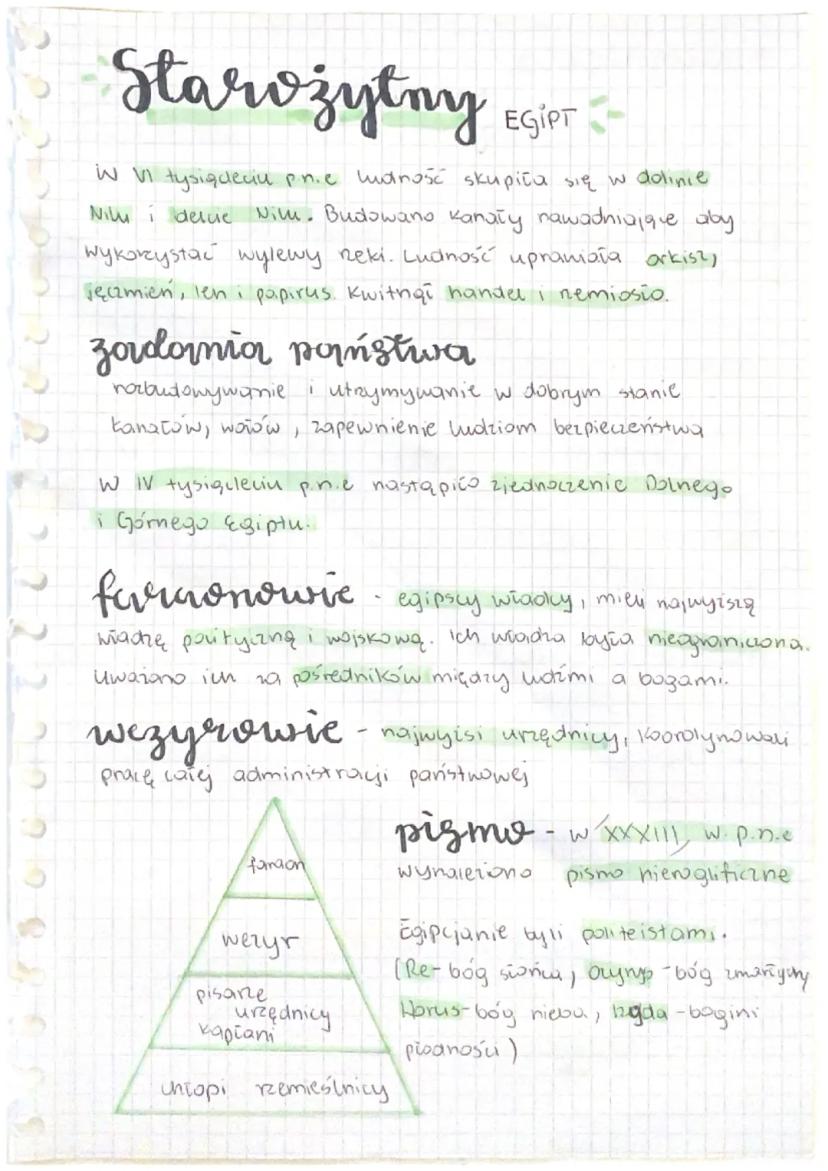 Starożytny EGIPT
W VI tysiącleciu p.n.e ludność skupiła się w dolinie
Nilu i delcie Nilu. Budowano kanały nawadniające aby
wykorzystać wylewy rzeki. Ludność uprawiała orkisz,
jęczmień, len i papirus. Kwitnął handel i rzemiosło.
zadania państwa
rozbudowywanie i utrzymywanie w dobrym stanie
kanałów, wałów, zapewnienie ludziom bezpieczeństwa
W IV tysiącleciu p.n.e nastąpiło zjednoczenie Dolnego
i Górnego Egiptu.
faraonowie - egipscy władcy, mieli najwyższą
władzę polityczną i wojskową. Ich władza była nieograniczona.
Uważano ich za pośredników między ludźmi a bogami.
wezyrowie - najwyżsi urzędnicy, koordynowali
pracę całej administracji państwowej
pismo - w XXXIII w. p.n.e
wynaleziono pismo hieroglificzne
Egipcjanie byli politeistami.
(Re-bóg słońca, Ozyrys -bóg zmarłych
Horus-bóg nieba, Izyda -bogini
płodności)
faraon
wezyr
pisarze
urzędnicy
kapłani
chłopi rzemieślnicy